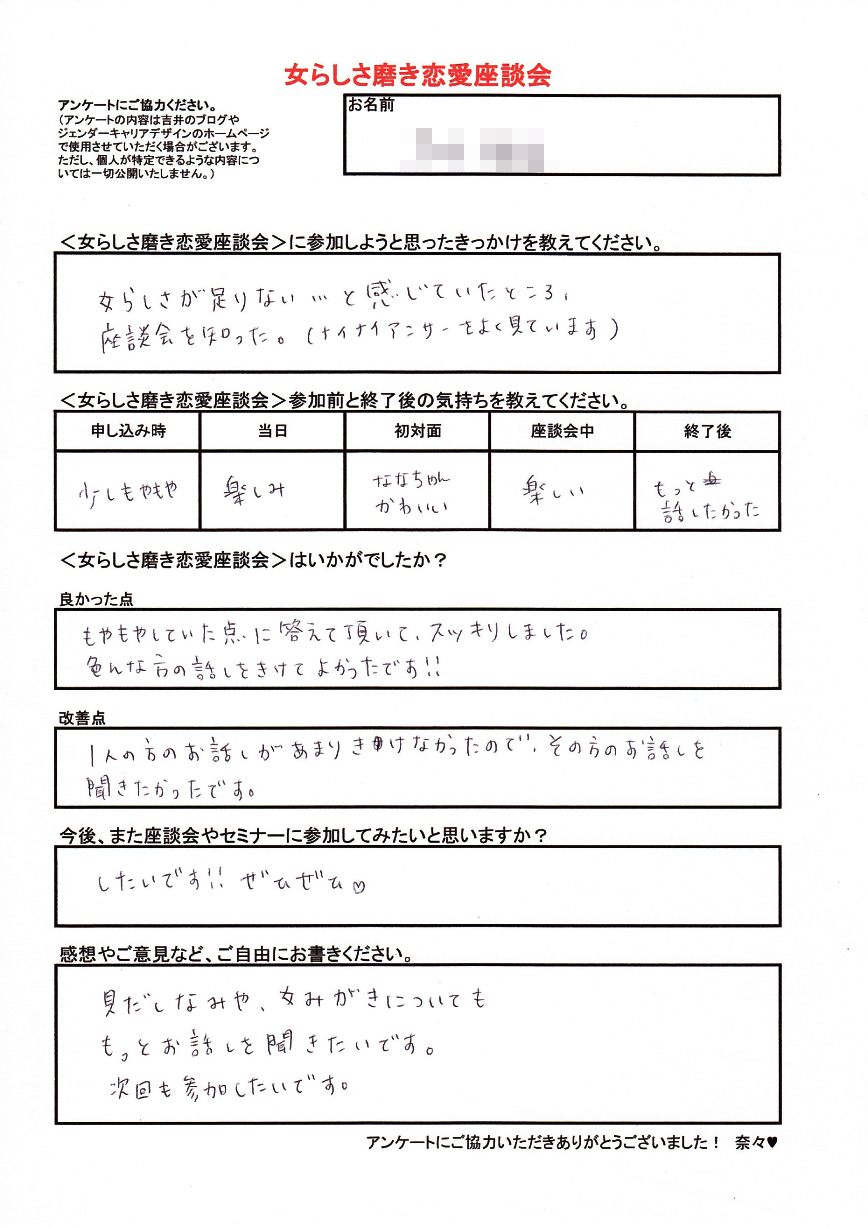 女らしさ磨き恋愛座談会
アンケートにご協力ください。
（アンケートの内容は吉井のブログや
ジェンダーキャリアデザインのホームページ
で使用させていただく場合がございます。
ただし、個人が特定できるような内容につ
いては一切公開いたしません。）
お名前
＜女らしさ磨き恋愛座談会＞に参加しようと思ったきっかけを教えてください。
女らしさが足りない…と感じていたところ、
座談会を知った。（ナイナイアンサーをよく見ています）
＜女らしさ磨き恋愛座談会＞参加前と終了後の気持ちを教えてください。
申し込み時 当日 初対面 座談会中 終了後
少しもやもや 楽しみ ななちゃん かわいい 楽しい もっと 話したかった
＜女らしさ磨き恋愛座談会＞はいかがでしたか？
良かった点
もやもやしていた点に答えて頂いて、スッキリしました。
色んな方の話しをきけてよかったです!!
改善点
1人の方のお話しがあまりきけなかったので、その方のお話しを
聞きたかったです。
今後、また座談会やセミナーに参加してみたいと思いますか？
したいです!! ぜひぜひ♡
感想やご意見など、ご自由にお書きください。
見だしなみや、女みがきについても
もっとお話しを聞きたいです。
次回も参加したいです。
アンケートにご協力いただきありがとうございました！ 奈々♥